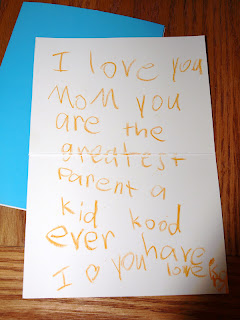 I love you
MOM you
are the
greatest
Parent a
kid kood
ever have
I you love